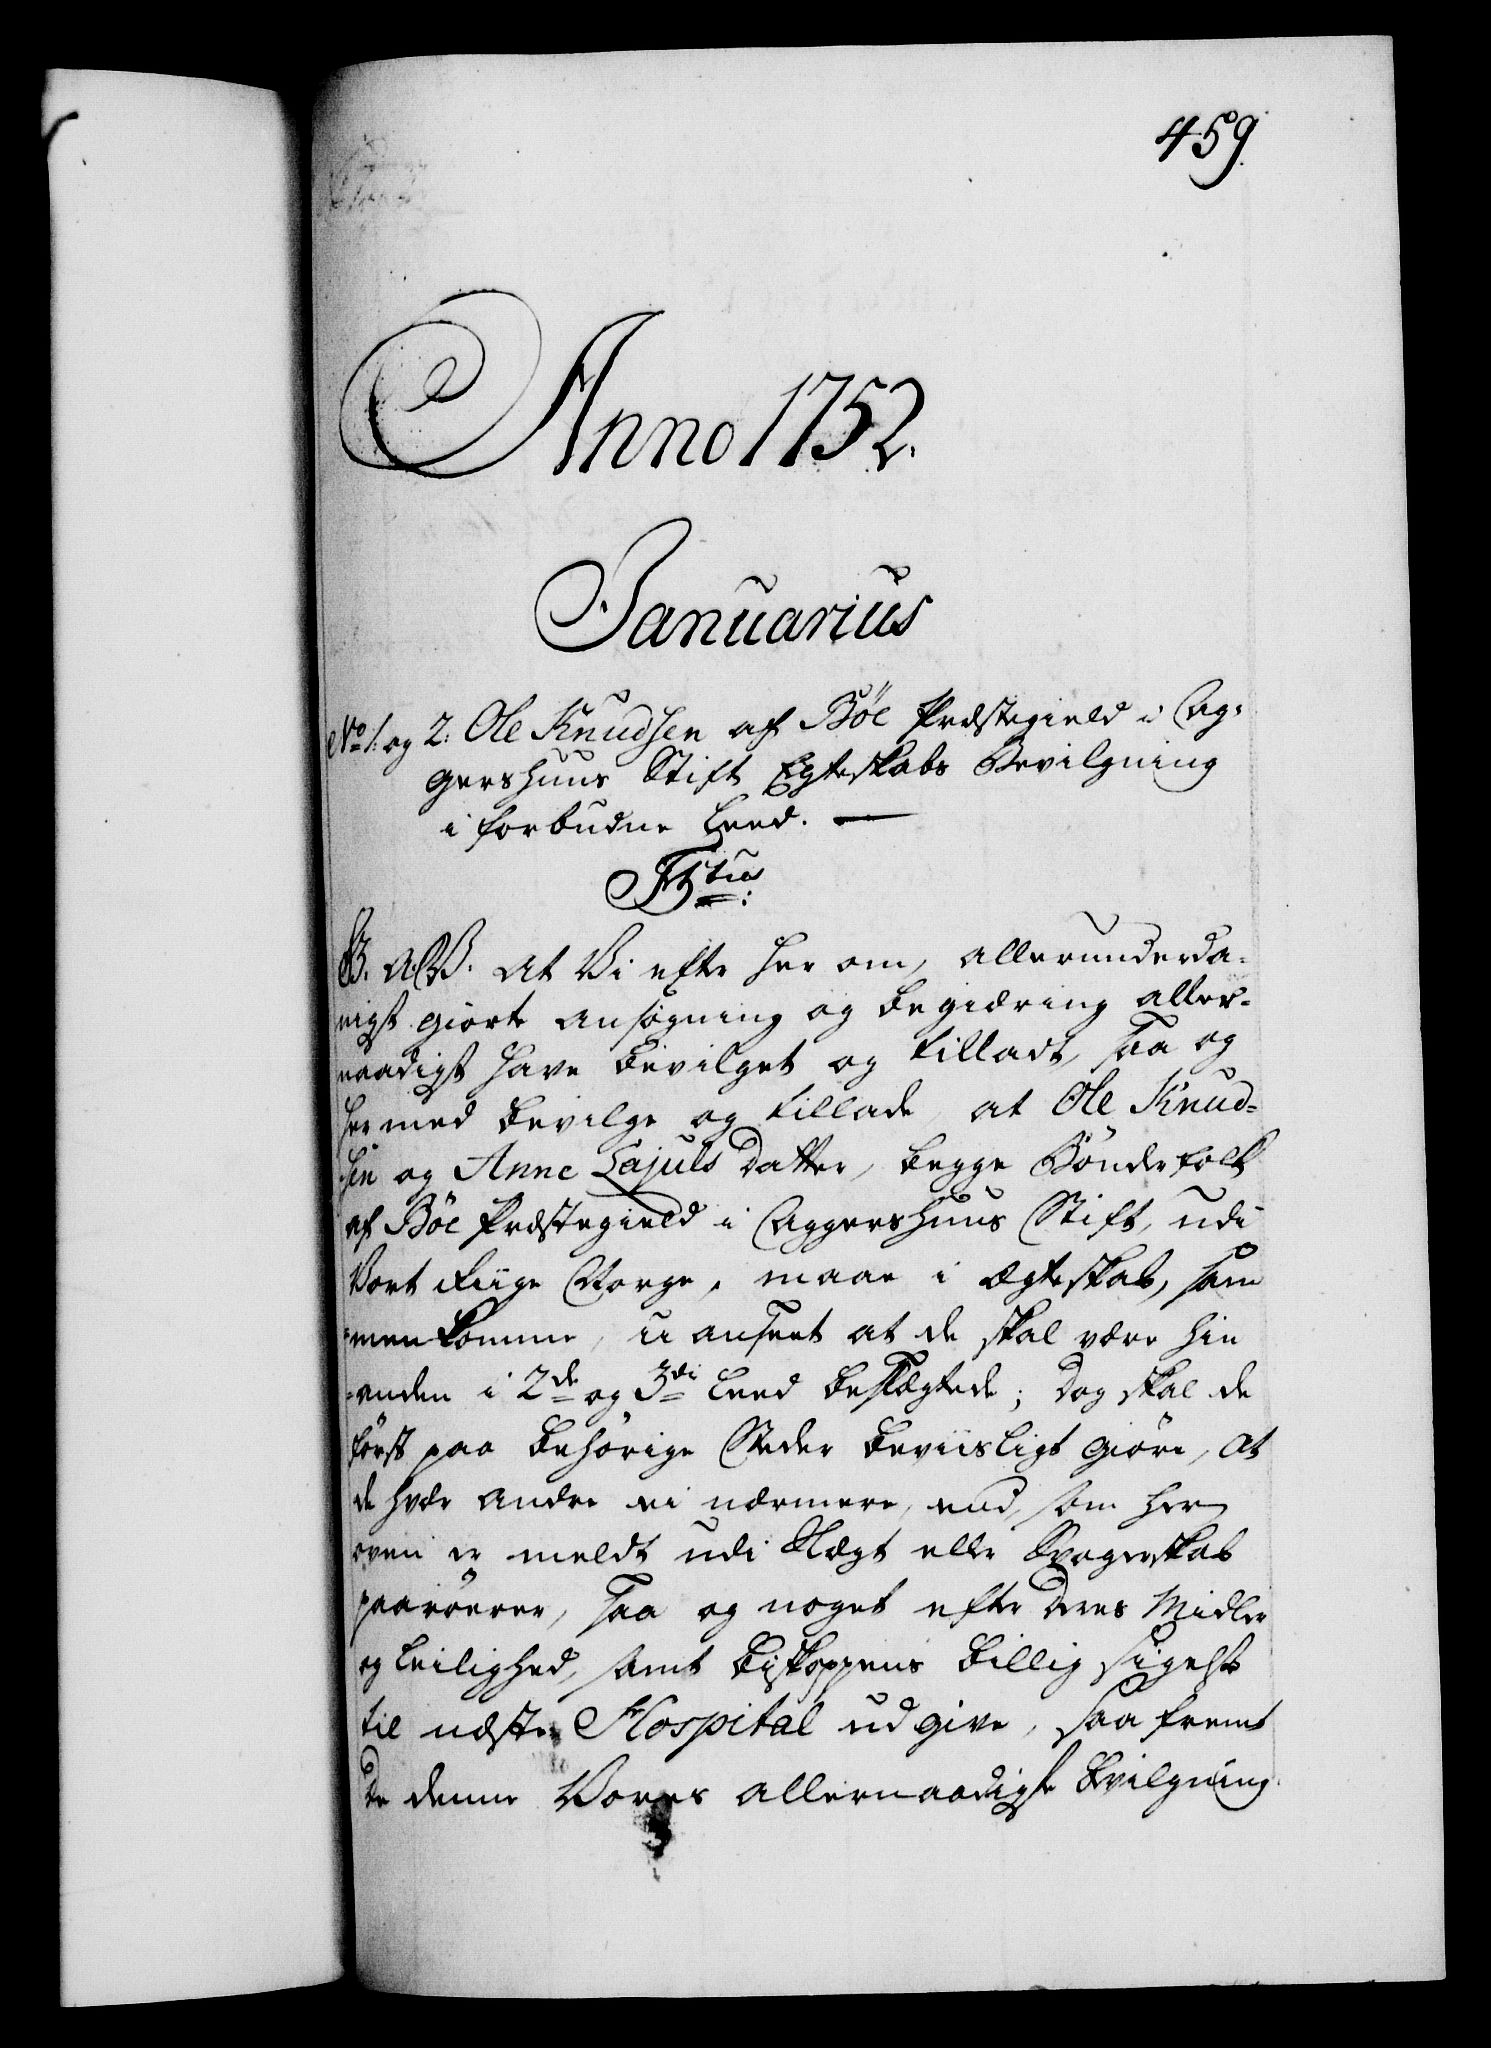 459.
Anno 1752.
Januarius
No 1: og 2: Ole Knudsen af Böe Præstegield i Ag-
gershuus Stift Egteskabs Bevilgning
i forbudne Leed. —
F5tus
G. A. V. At Vi efter her om, allerunderda-
nigst giorte ansøgning og begiæring aller-
naadigst have bevilget og tilladt, saa og
hermed bevilge og tillade, at Ole Knud-
sen og Anne Lajuls Datter, begge Bönderfolk
af Böe Præstegield i Aggershuus Stift, udi
Vort Riige Norge, maae i Ægteskab, sam
-menkomme, u anseet at de skal være hin
-anden i 2de og 3die Leed beslægtede; Dog skal de
först paa behörige Steder beviisligt giöre, at
de hver andre ei nærmere, end, som her
oven er meldt udi Slægt eller Svogerskab
paarörer, saa og noget efter Deres Midler
og Leilighed, samt Biskoppens billig sigelse
til næste Hospital udgive, saa fremt
De denne Vores allernaadigste Bevilgning